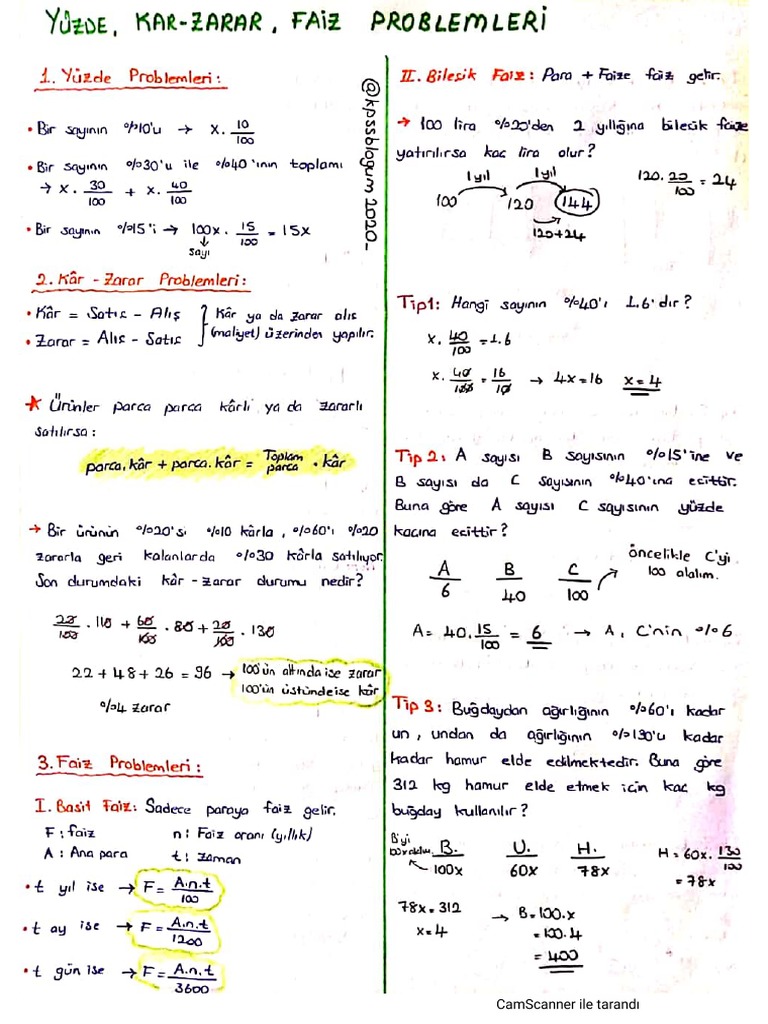 YÜZDE, KAR-ZARAR, FAİZ PROBLEMLERİ
1. Yüzde Problemleri:
• Bir sayının %10'u → x. 10/100
• Bir sayının %30'u ile %40'ının toplamı
→ x. 30/100 + x. 40/100
• Bir sayının %15'i → 100x. 15/100 = 15x
↓
sayı
2. Kâr - Zarar Problemleri:
• Kâr = Satış - Alış
• Zarar = Alış - Satış
} Kâr ya da zarar alış
(maliyet) üzerinden yapılır.
★ Ürünler parça parça kârlı ya da zararlı
satılırsa:
parça.kâr + parça.kâr = Toplam parça . kâr
→ Bir ürünün %20'si %10 kârla, %60'ı %20
zararla geri kalanlarda %30 kârla satılıyor.
Son durumdaki kâr-zarar durumu nedir?
20/100 . 110 + 60/100 . 80 + 20/100 . 130
22 + 48 + 26 = 96 → 100'ün altında ise zarar
100'ün üstünde ise kâr
%4 zarar
3. Faiz Problemleri:
I. Basit Faiz: Sadece paraya faiz gelir.
F: faiz n: Faiz oranı (yıllık)
A: Ana para t: zaman
• t yıl ise → F = A.n.t/100
• t ay ise → F = A.n.t/1200
• t gün ise → F = A.n.t/3600
@kpssblogum2020_
II. Bileşik Faiz: Para + Faize faiz gelir.
→ 100 lira %20'den 2 yıllığına bileşik faize
yatırılırsa kaç lira olur?
1 yıl 1 yıl
100 120 144
120+24
120. 20/100 = 24
Tip1: Hangi sayının %40'ı 1.6'dır?
x. 40/100 = 1.6
x. 40/100 = 16/10 → 4x = 16 x = 4
Tip 2: A sayısı B sayısının %15'ine ve
B sayısı da C sayısının %40'ına eşittir.
Buna göre A sayısı C sayısının yüzde
kaçına eşittir?
A/6 B/40 C/100 öncelikle C'yi
100 alalım.
A = 40. 15/100 = 6 → A, C'nin %6
Tip 3: Buğdaydan ağırlığının %60'ı kadar
un, undan da ağırlığının %130'u kadar
kadar hamur elde edilmektedir. Buna göre
312 kg hamur elde etmek için kaç kg
buğday kullanılır?
B'yi
B./100x U./60x H./78x H = 60x. 130/100
= 78x
78x = 312 → B = 100.x
x = 4 = 100.4
= 400
CamScanner ile tarandı